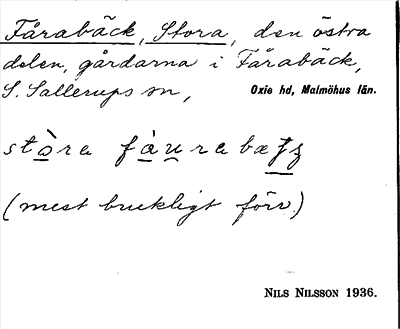 Fårabäck, Stora, den östra
delen, gårdarna i Fårabäck,
S. Sallerups sn, Oxie hd, Malmöhus län.
stòra fàu̯rabæ
(mest brukligt förr.)
NILS NILSSON 1936.